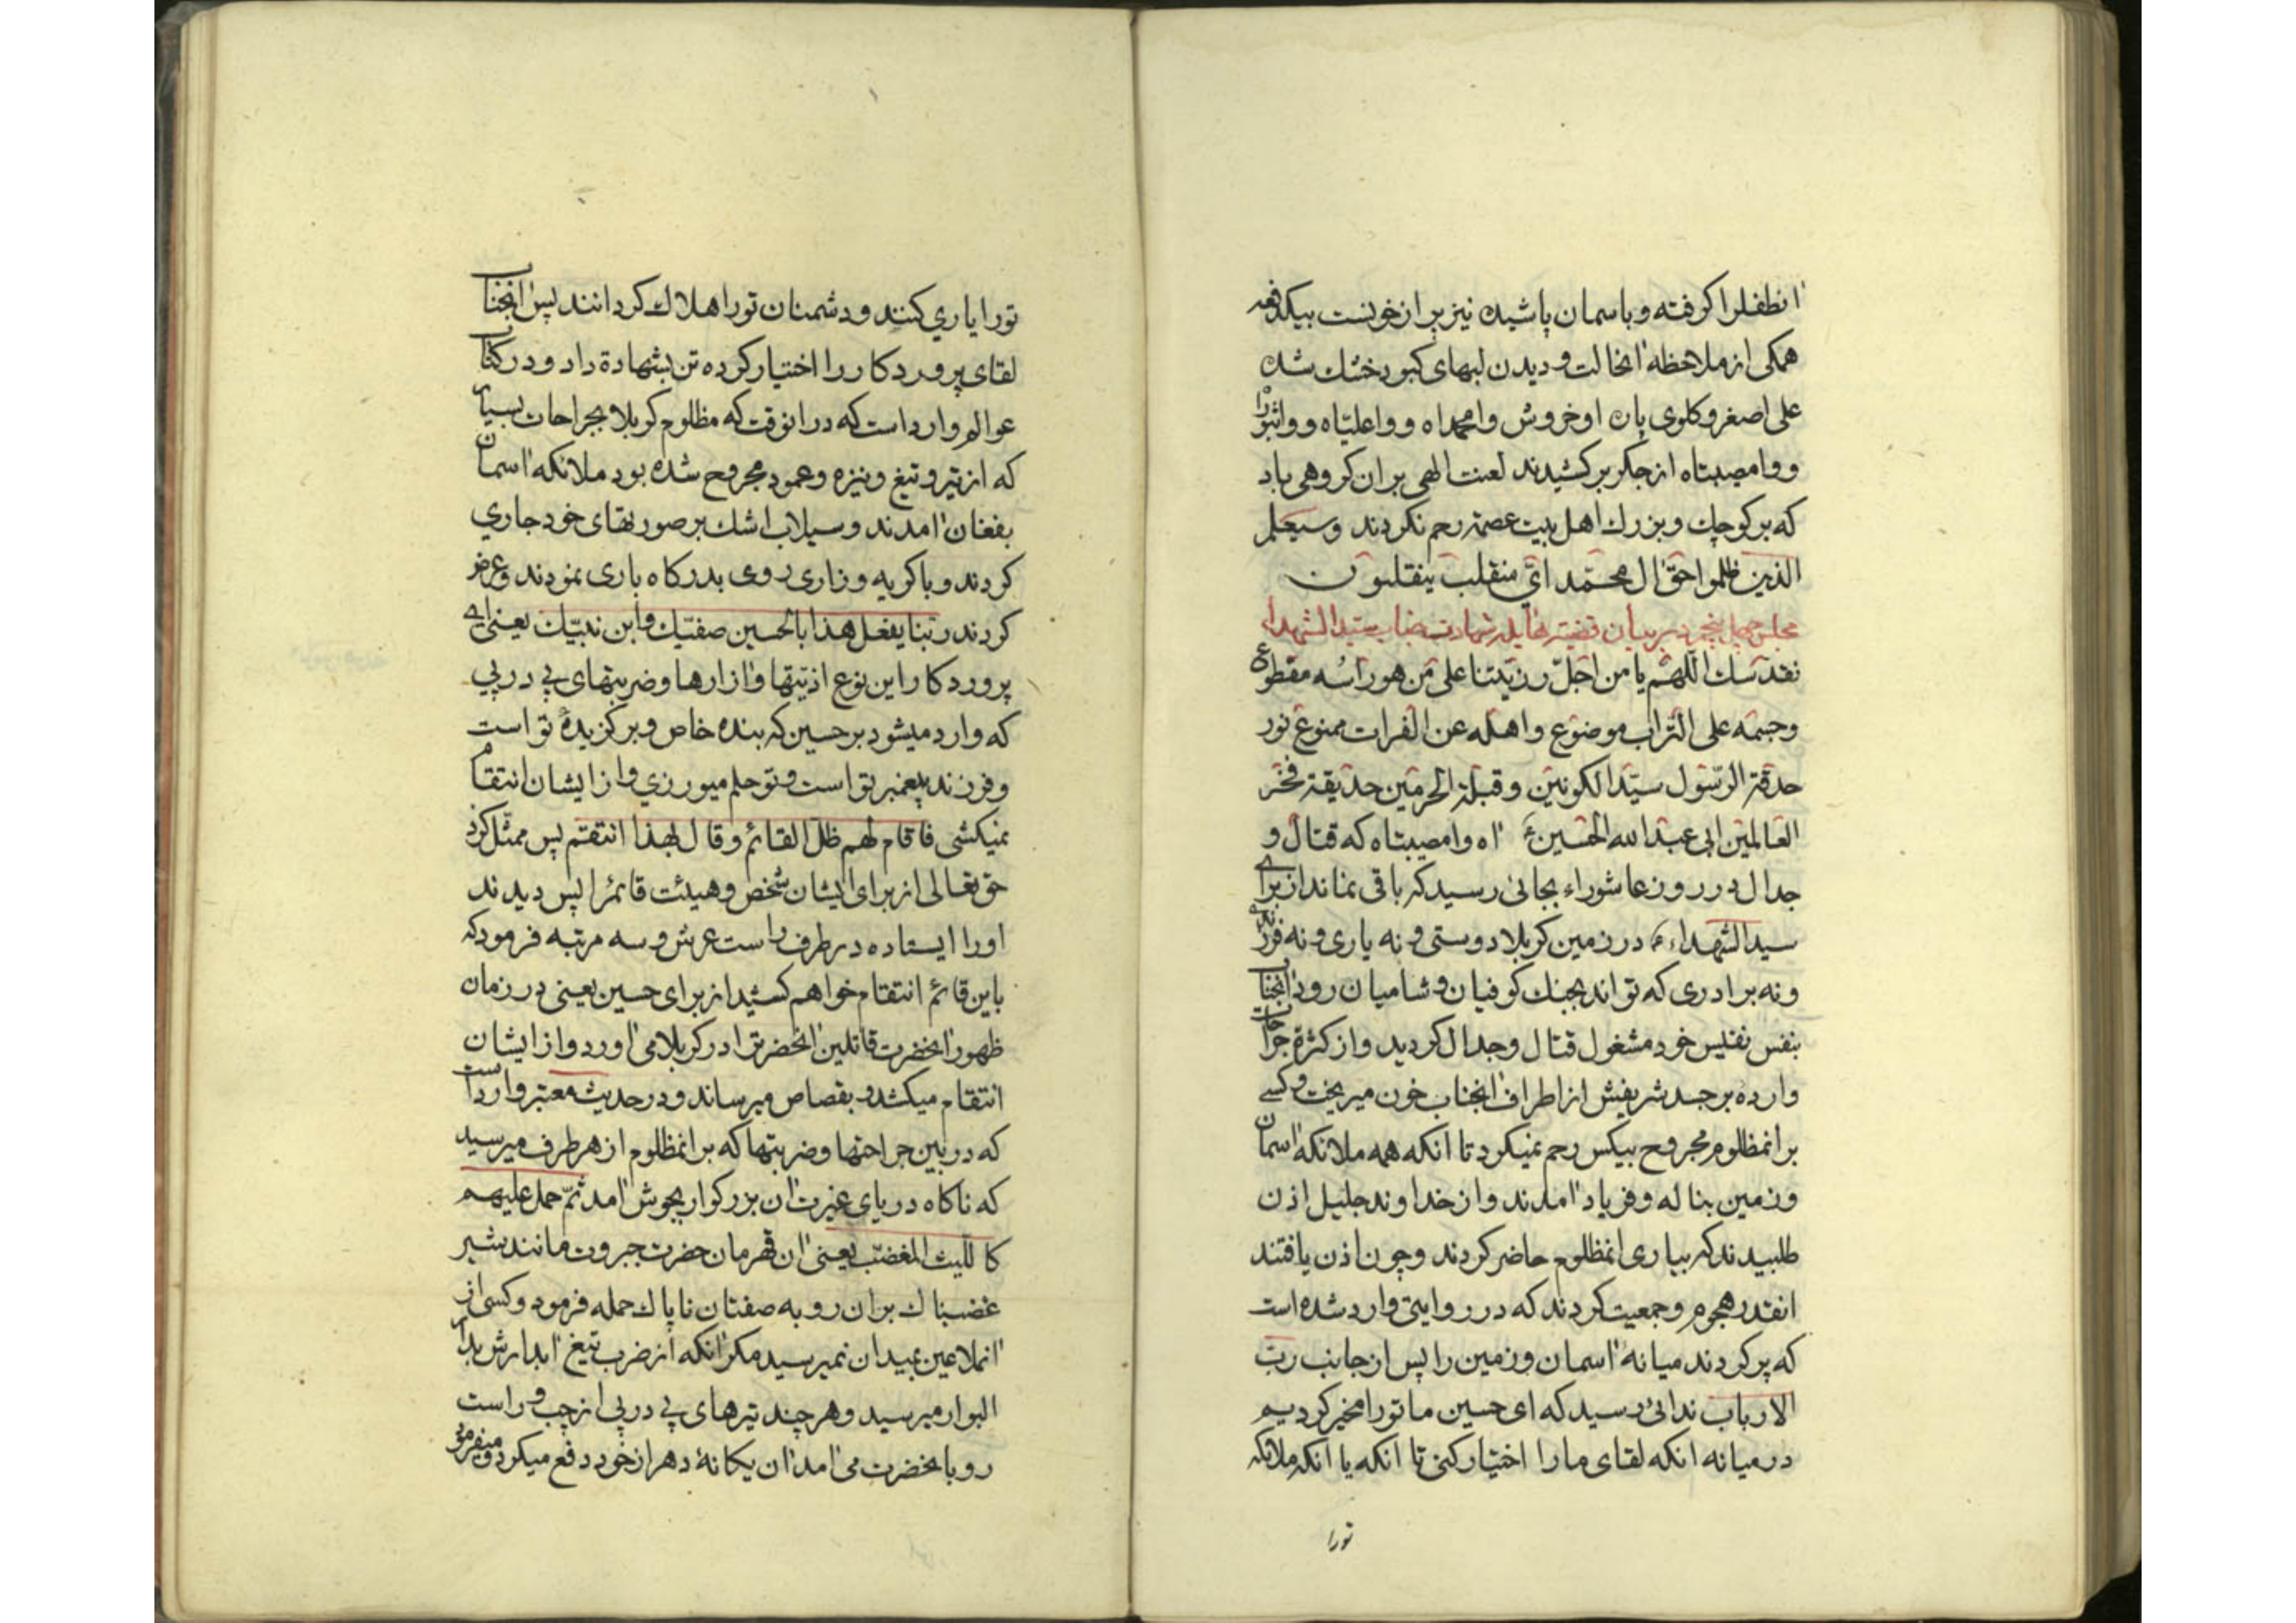 انطفلرا کرفته و باسمان پاشید نیز پر از خونست بیکدفعه
همکی از ملاحظه انحالت و دیدن لبهای کبود خشك شده
علی اصغر و کلوی پاره او خروش وا محمداه و وا علیّاه و واثبوراه
و وا مصیبتاه از جکر برکشیدند لعنت الهی بران کروهی باد
که بر کوچك و بزرك اهل بیت عصمة رحم نکردند وسیعلم
الذین ظلموا حقّ ال محمّد ایّ منقلب ینقلبون
مجلس چهل پنجم در بیان قضیّه هایله شهادت جناب سیّد الشهداء
نقدّسك اللهمّ یا من اجلّ رزیّتنا علی من هو راسُه مقطوع
وجسمه علی التراب موضوع واهله عن الفرات ممنوع نور
حدقة الرّسول سیّد الکونین وقبلة الحرمین حدیقة فخر
العالمین ابی عبد الله الحسین ع اه وا مصیبتاه که قتال و
جدال در روز عاشوراء بجائی رسید که باقی نماند از برای
سید الشهداء ع در زمین کربلا دوستی و نه یاری و نه فرزندی
و نه برادری که تواند بجنك کوفیان و شامیان رود انجناب
بنفس نفیس خود مشغول قتال وجدال کردید و از کثرة جراحات
وارده بر جسد شریفش از اطراف انجناب خون میریخت و کسی
بر انمظلوم مجروح بیکس رحم نمیکرد تا انکه همه ملائکه اسمان
و زمین بناله و فریاد امدند و از خداوند جلیل اذن
طلبیدند که بیاری انمظلوم حاضر کردند و چون اذن یافتند
انقدر هجوم و جمعیت کردند که در روایتی وارد شده است
که پر کردند میانه اسمان و زمین را پس از جانب ربّ
الارباب ندائی رسید که ای حسین ما تورا مخیر کردیم
در میانه انکه لقای ما را اختیار کنی تا انکه یا انکه ملائکه
تورا
تورا یاري کنند و دشمنان تورا هلاك کردانند پس انجناب
لقای پروردکار را اختیار کرده تن بشهادة داد و در کتاب
عوالم وارد است که در انوقت که مظلوم کربلا بجراحات بسیار
که از تیر و تیغ و نیزه و عمود مجروح شده بود ملائکه اسمان
بفغان امدند و سیلاب اشك بر صورتهای خود جاري
کردند و با کریه و زاری روی بدرکاه باری نمودند و عرض
کردند ربّنا یفعل هذا بالحسین صفیّك وابن نبیّك یعنی ای
پروردکار این نوع اذیّتها و ازارها و ضربتهای پی در پي
که وارد میشود بر حسین که بنده خاص و برکزیدهٔ تو است
و فرزند پیغمبر تو است و تو حلم میورزي و از ایشان انتقام
نمیکشی فاقام لهم ظلّ القائم وقال بهذا انتقم پس ممثّل کرد
حق تعالی از برای ایشان شخص و هیئت قائم را پس دیدند
او را ایستاده در طرف راست عرش و سه مرتبه فرمود که
باین قائم انتقام خواهم کشید از برای حسین یعنی در زمان
ظهور انحضرت قاتلین انحضرترا در کربلا می اورد و از ایشان
انتقام میکشد و بقصاص میرساند و در حدیث معتبر وارد است
که در بین جراحتها و ضربتها که بر انمظلوم از هر طرف میرسید
که ناکاه دریای غیرت ان بزرکوار بجوش امد ثمّ حمل علیهم
کاللیث المغضّب یعنی ان قهرمان حضرت جبروت مانند شیر
غضبناك بران روبه صفتان ناپاك حمله فرمود و کسی از
انملاعین بمیدان نمیرسید مکر انکه از ضرب تیغ ابدارش بدار
البوار میرسید و هر چند تیرهای پی در پی از چپ و راست
رو بانحضرت می امد ان یکانهٔ دهر از خود دفع میکرد و میفرمود